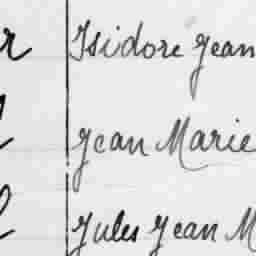 r Isidore Jean
Jean Marie
Jules Jean M